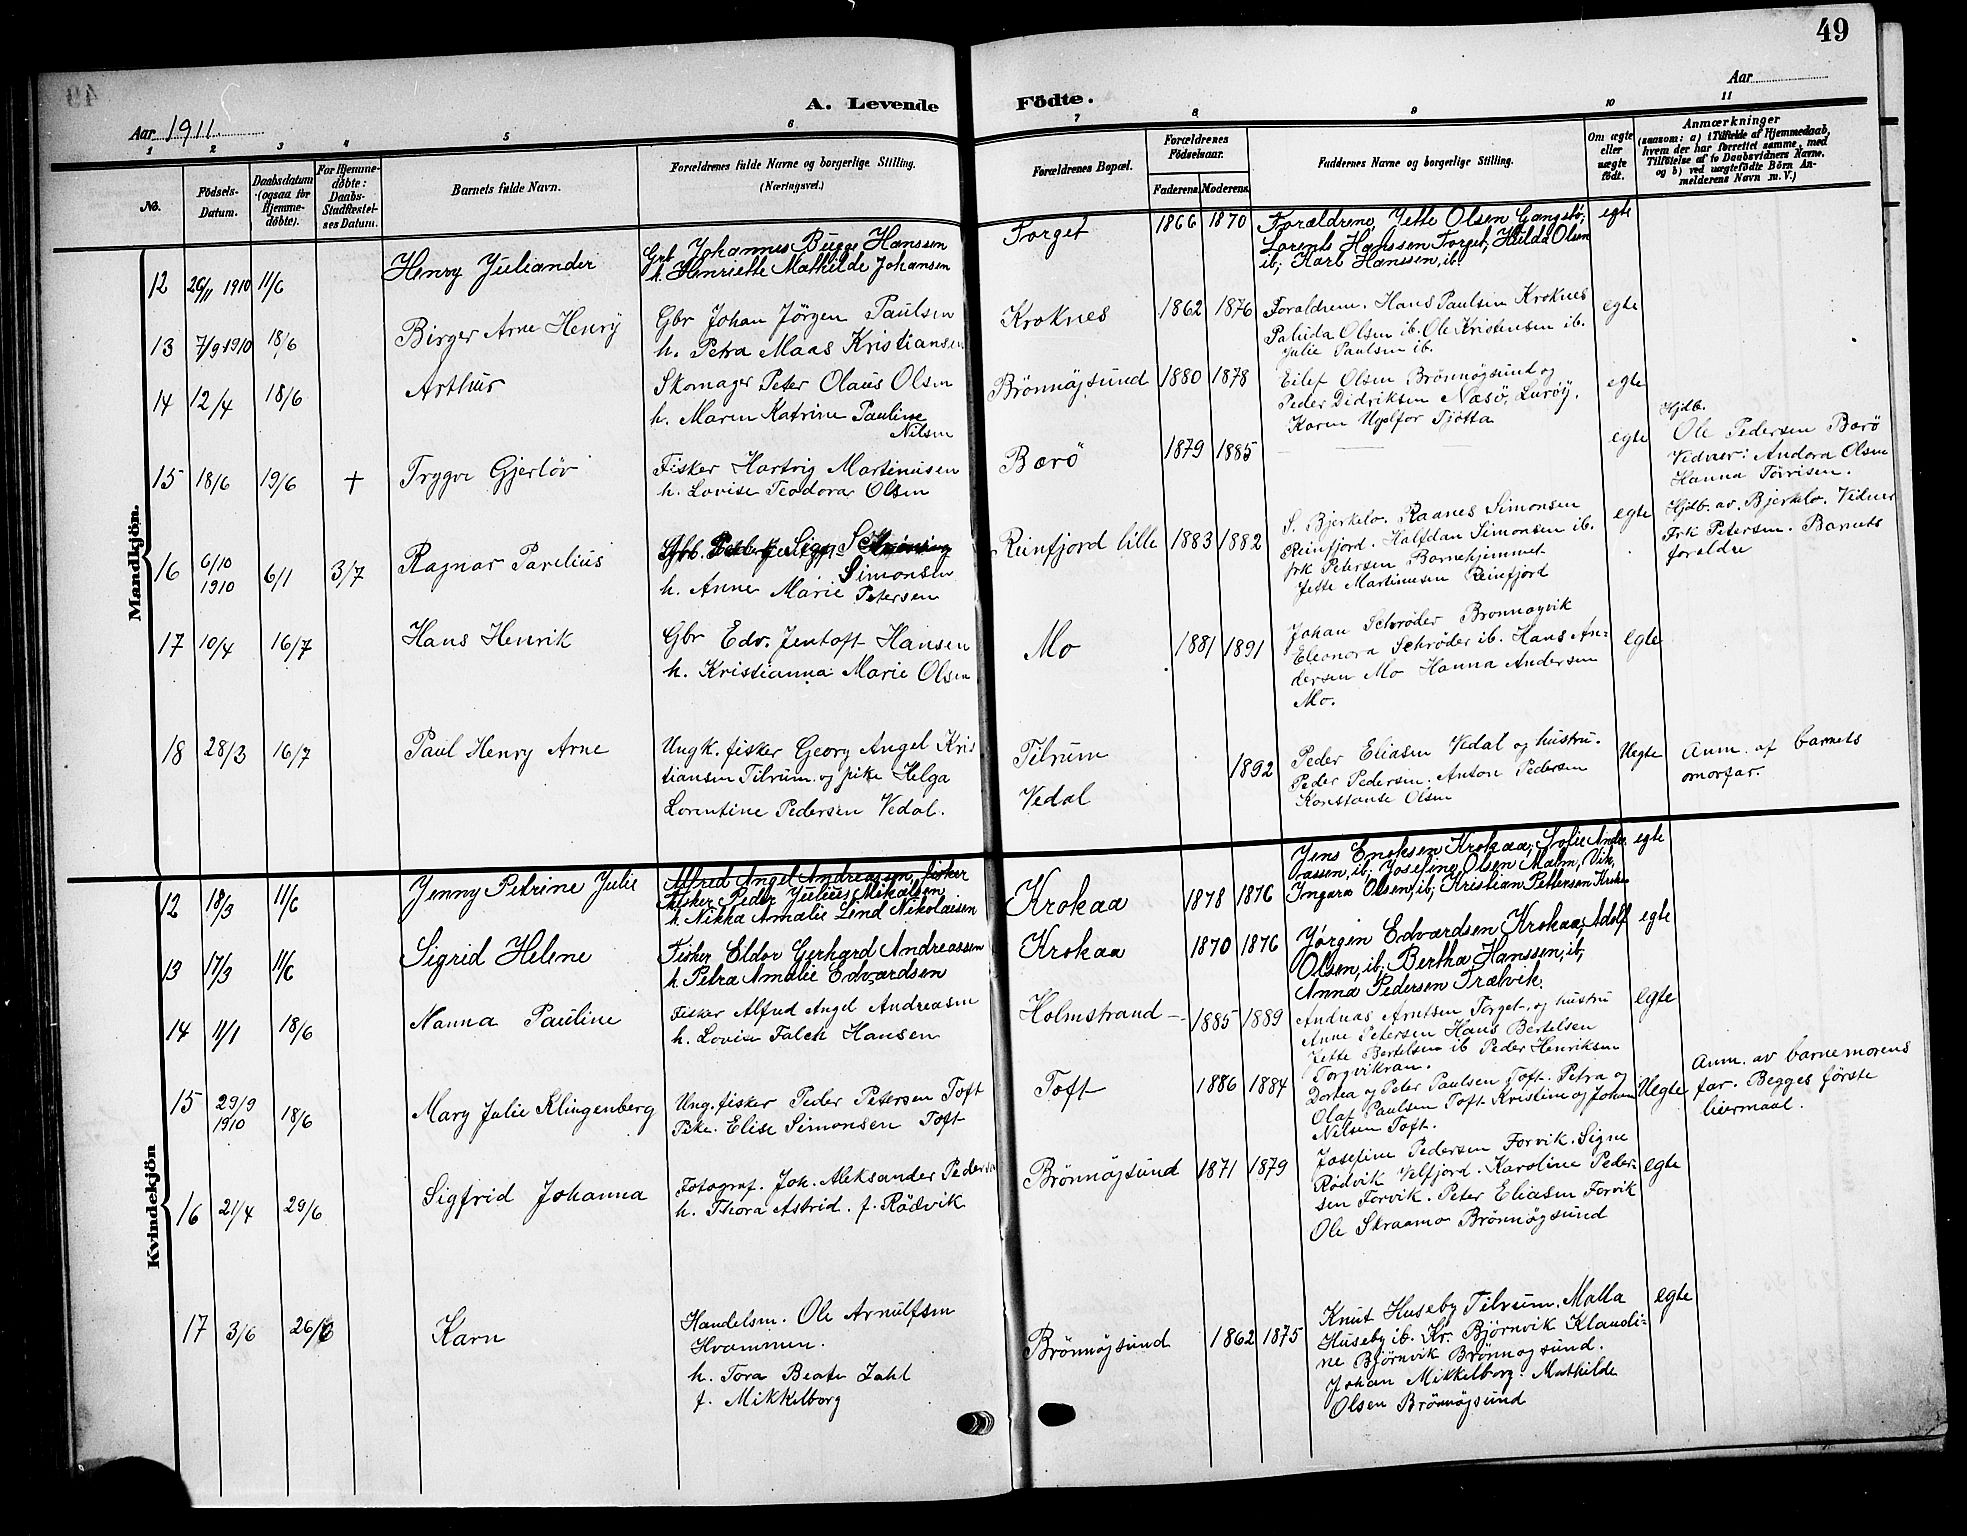 49
Aar 1911
A. Levende Födte.
Aar
1 2 3 4 5 6 7 8 9 10 11
No.
Födsels-Datum.
Daabsdatum (ogsaa for Hjemme-döbte).
For Hjemme-döbte: Daabs-Stadfæstel-ses Datum.
Barnets fulde Navn.
Forældrenes fulde Navne og borgerlige Stilling.
(Næringsvei.)
Forældrenes Bopæl.
Forældrenes Födselsaar.
Faderens. Moderens.
Faddernes Navne og borgerlige Stilling.
Om ægte eller uægte födt.
Anmærkninger
(saasom: a) i Tilfælde af Hjemmedaab,
hvem der har forrettet samme, med
Tilföielse af to Daabsvidners Navne,
og b) ved uægtefödte Börn An-
melderens Navn m. V.)
Mandkjön.
12 26/11 1910 11/6 Henry Juliander
Grb Johannes Bugge Hanssen
h. Henriette Mathilde Johansen
Torget 1866 1870
Forældrene, Jette Olsen Gangstø,
Lorents Hanssen Torget, Hilda Olsen
ib; Karl Hanssen, ib.
egte
13 7/9 1910 18/6 Birger Arne Henry
Gbr Johan Jörgen Paulsen
h. Petra Maas Kristiansen
Kroknes 1862 1876
Foraldrene. Hans Paulsen Kroknes
Olsen ib. Ole Kristensen ib.
Julie Paulsen ib.
egte
14 12/4 18/6 Arthur
Skomager Peter Olaus Olsen
h. Maren Katrine Pauline
Nilsen
Brönnöjsund 1880 1878
Eilef Olsen Brönnögsund og
Peder Didriksen Næsö, Luröy.
Karen Tjøtta
egte
15 18/6 19/6 + Trygve Gjerlöv
Fisker Hartvig Martinusen
h. Lovise Teodora Olsen
Barö 1879 1885
egte
Hjdb.
Ole Pedersen Barö
Vidner: Andora Olsen
Hanna Törrisen.
16 6/10 1910 6/1 3/7 Ragnar Parelius
Simonsen
h. Anne Marie Petersen
Reinfjord lille 1883 1882
S. Bjerkelo. Raanes Simonsen
Reinfjord. Halfdan Simonsen ib.
frk Petersen Barnehjemmet
Jette Martinusen Reinfjord
egte
Hjdb. av. Bjerkelo. Vidner
Frk Petersen. Barnets
foraldre
17 10/4 16/7 Hans Henrik
Gbr Edv. Jentoft Hansen
h. Kristianna Marie Olsen
Mo 1881 1891
Johan Schrøder Bronnøyvik
Eleonora Schrøder ib. Hans An-
dersen Mo Hanna Andersen
Mo.
egte
18 28/3 16/7 Paul Henry Arne
Ungk. fisker Georg Angel Kris
tiansen Tilrum og pike Helga
Lorentine Pedersen Vedal.
Tilrum
Vedal
1892
Peder Eliasen Vedal og hustru.
Peder Pedersen. Anton Pedersen
Konstanse Olsen
Uegte
Anm. af barnets
morfar.
Kvindekjön
12 18/3 11/6 Jenny Petrine Julie
Alfred Angel Andreasen, fisker
Fisker Peder Julius Mikalsen
h. Nikka Amalie Lind Nikolaisen
Krokaa 1878 1876
Jens Enoksen Krokaa, Sofie Andre
assen, ib; Josefine Olsen Malm, Vik,
Ingara Olsen, ib; Kristian Pettersen Krokaa
egte
13 17/3 11/6 Sigrid Helene
Fisker Eldor Gerhard Andreassen
h. Petra Amalie Edvardsen
Krokaa 1870 1876
Jørgen Edvardsen Krokaa, Adolf
Olsen, ib; Bertha Hanssen, ib;
Anna Pedersen Trælvik.
egte
14 11/1 18/6 Nanna Pauline
Fisker Alfred Angel Andreasen
h. Lovise Falch Hansen
Holmstrand 1885 1889
Andreas Arntsen Torget og hustru
Anne Petersen Hans Bertelsen
Jette Bertelsen ib Peder Henriksen
Torgvikran.
egte
15 29/9 1910 18/6 Mary Julie Klingenberg
Ung. fisker Peder Petersen Toft
Pike. Elise Simonsen Toft
Toft 1886 1884
Dortea og Peter Paulsen Toft. Petra og
Olaf Paulsen Toft Kristine og Johan
Nilsen Toft.
Uegte
Anm. av barnemorens
far. Begges förste
leiermaal.
16 21/4 29/6 Sigfrid Johanna
Fotograf. Joh. Aleksander Pedersen
h. Thora Astrid. f. Rödvik
Brönnöjsund 1871 1879
Josefine Pedersen Forvik. Signe
Rødvik Velfjord. Karoline Peder-
sen Forvik. Peter Eliasen Forvik
Ole Skraamo Brönnögsund
egte
17 3/6 26/6 Karn
Handelsm. Ole Arnulfsen
Hvammen.
h. Tora Beate Zahl
f. Mikkelborg
Brönnöjsund 1862 1875
Knut Huseby Tilrum. Malla
Huseby ib. Kr. Bjørnvik Klaudi-
ne Bjørnvik Brönnøgsund.
Johan Mikkelborg. Mathilde
Olsen Brönnöjsund
egte